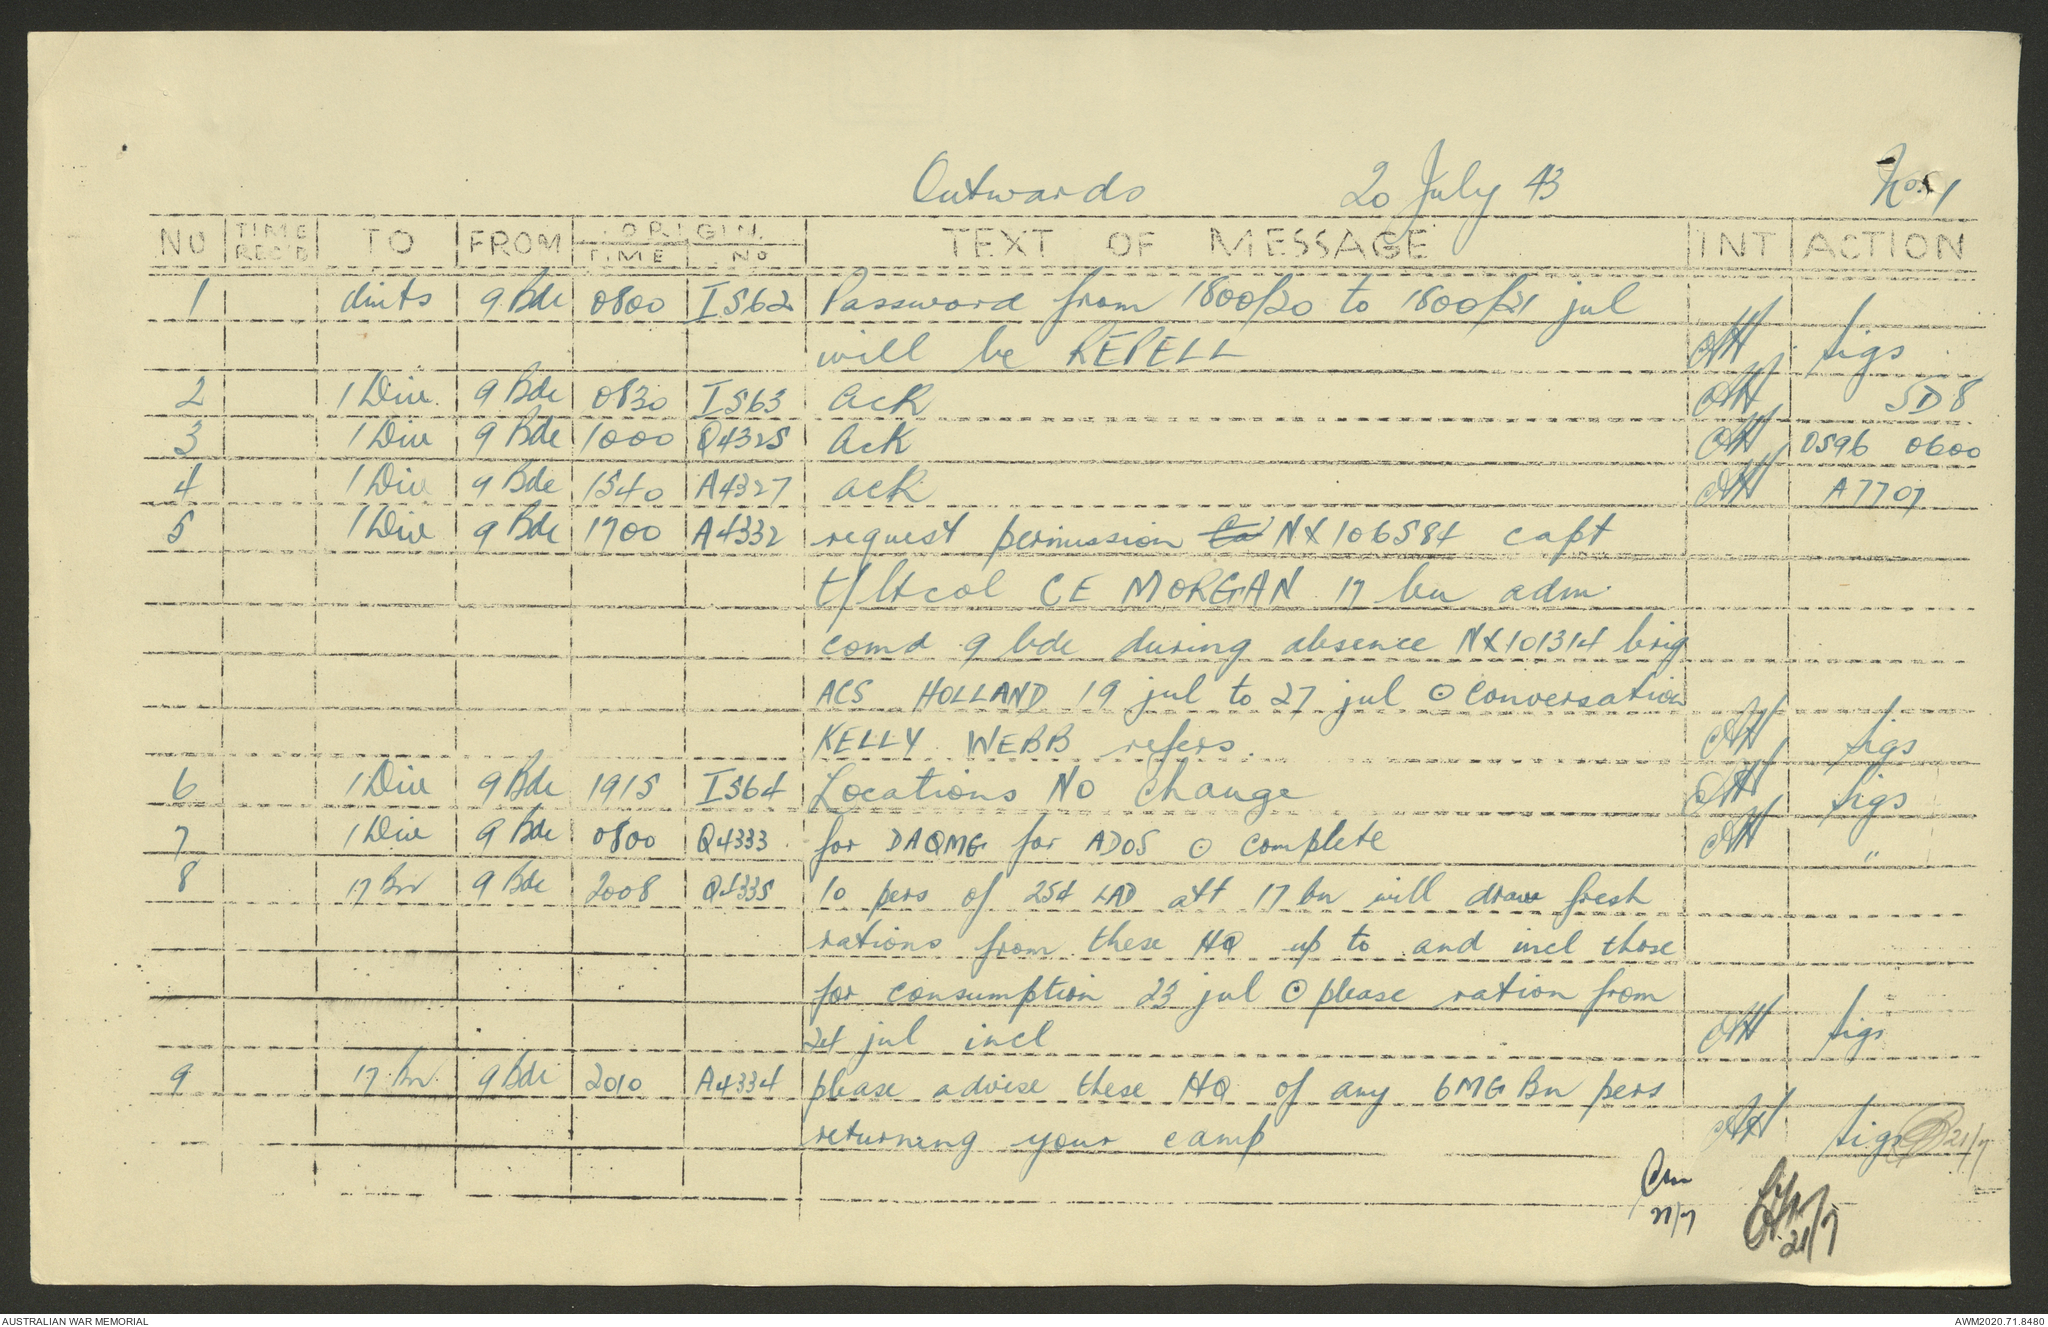 Outwards 20 July 43 No. 1
NO TIME REC'D TO FROM ORIGIN TIME NO TEXT OF MESSAGE INT ACTION
1 dints 9 Bde 0800 IS62 Password from 1800/20 to 1800/21 jul
will be REPELL sigs
2 1 Div. 9 Bde 0830 IS63 ack SD8
3 1 Div 9 Bde 1000 Q4325 ack 0596 0600
4 1 Div 9 Bde 1540 A4327 ack A7707
5 1 Div 9 Bde 1700 A4332 request permission to NX106584 capt
t/ltcol CE MORGAN 17 bn adm.
comd 9 bde during absence NX101314 brig
ACS HOLLAND 19 jul to 27 jul ⊙ conversation
KELLY WEBB refers. sigs
6 1 Div 9 Bde 1915 IS64 Locations NO Change sigs
7 1 Div 9 Bde 0800 Q4333 for DAQMG for ADOS ⊙ complete "
8 17 Bn 9 Bde 2008 Q4335 10 pers of 254 LAD att 17 bn will draw fresh
rations from these HQ up to and incl those
for consumption 23 jul ⊙ please ration from
24 jul incl sigs
9 17 Bn. 9 Bde 2010 A4334 please advise these HQ of any 6MG Bn pers
returning your camp sigs 21/7
21/7 21/7
AUSTRALIAN WAR MEMORIAL AWM2020.71.8480